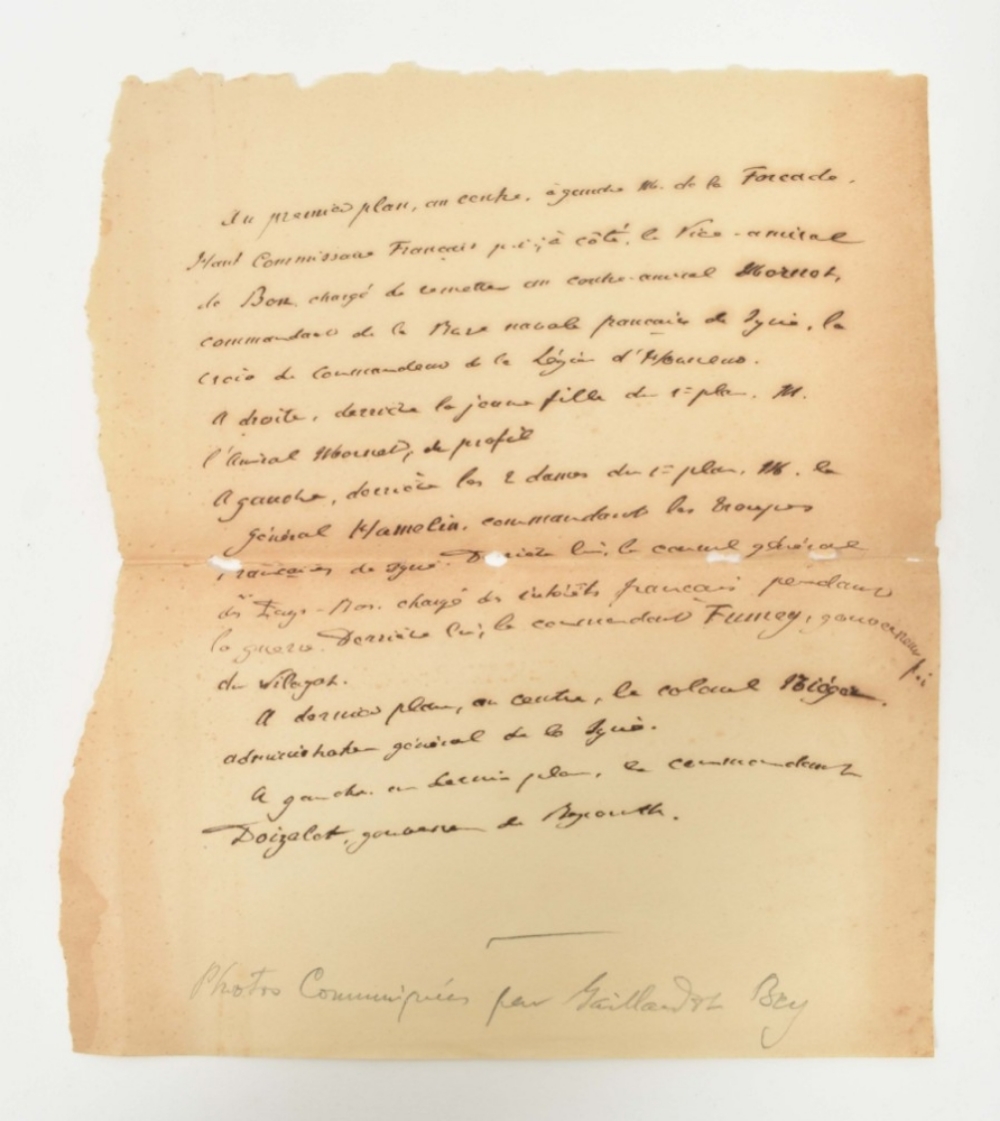 Au premier plan, au centre, à gauche M. de la Forcade.
Haut Commissaire Français p.i; à côté, le Vice-amiral
de Bon, chargé de remettre au contre-amiral Mornet,
commandant de la Base navale française de Syrie, la
croix de Commandeur de la Légion d'Honneur.
A droite, derrière la jeune fille du 1er plan, M.
l'Amiral Mornet, de profil
A gauche, derrière les 2 dames du 1er plan, M. le
général Hamelin, commandant les troupes
françaises de Syrie. Derrière lui, le consul général
des Pays-Bas, chargé des intérêts français pendant
la guerre. Derrière lui, le commandant Fumey, gouverneur p.i
du Vilayet.
A dernier plan, au centre, le colonel Niéger,
administrateur général de la Syrie.
A gauche, au dernier plan, le commandant
Doizelet, gouverneur de Beyrouth.
Photos Communiquées par Gaillardot Bey